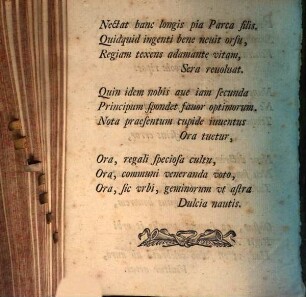 Nectat hanc longis pia Parca filis,
Quidquid ingenti bene neuit orsu,
Regiam texens adamante vitam,
Sera reuoluat.
Quin idem nobis aue iam secunda
Principum spondet fauor optimorum,
Nota praesentum cupide iuuentus
Ora tuetur,
Ora, regali speciosa cultu,
Ora, communi veneranda voto,
Ora, sic vrbi, geminorum vt astra
Dulcia nautis.